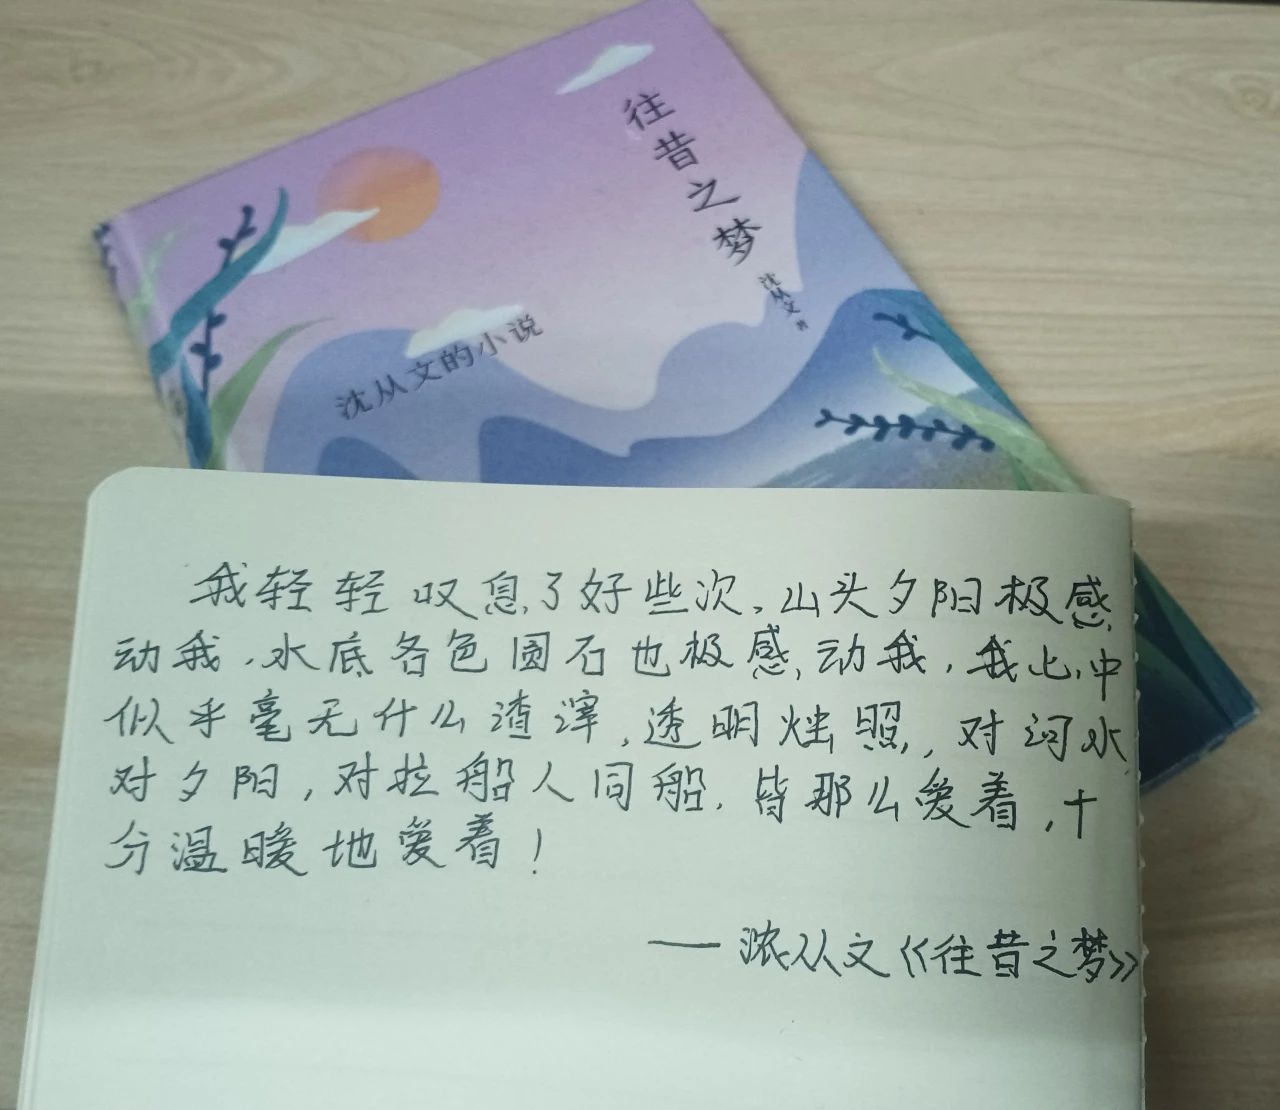 往昔之梦
沈从文 著
沈从文的小说
我轻轻叹息了好些次。山头夕阳极感
动我,水底各色圆石也极感动我,我心中
似乎毫无什么渣滓,透明烛照,对河水
对夕阳,对拉船人同船,皆那么爱着,十
分温暖地爱着!
——沈从文《往昔之梦》